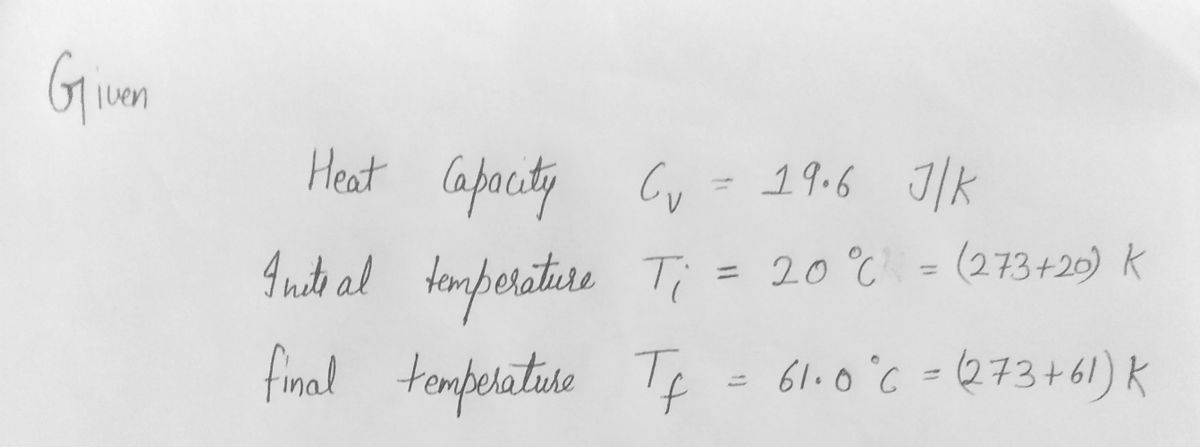 Given
Heat Capacity Cv = 19.6 J/K
Initial temperature Ti = 20 °C = (273+20) K
final temperature Tf = 61.0 °C = (273+61) K